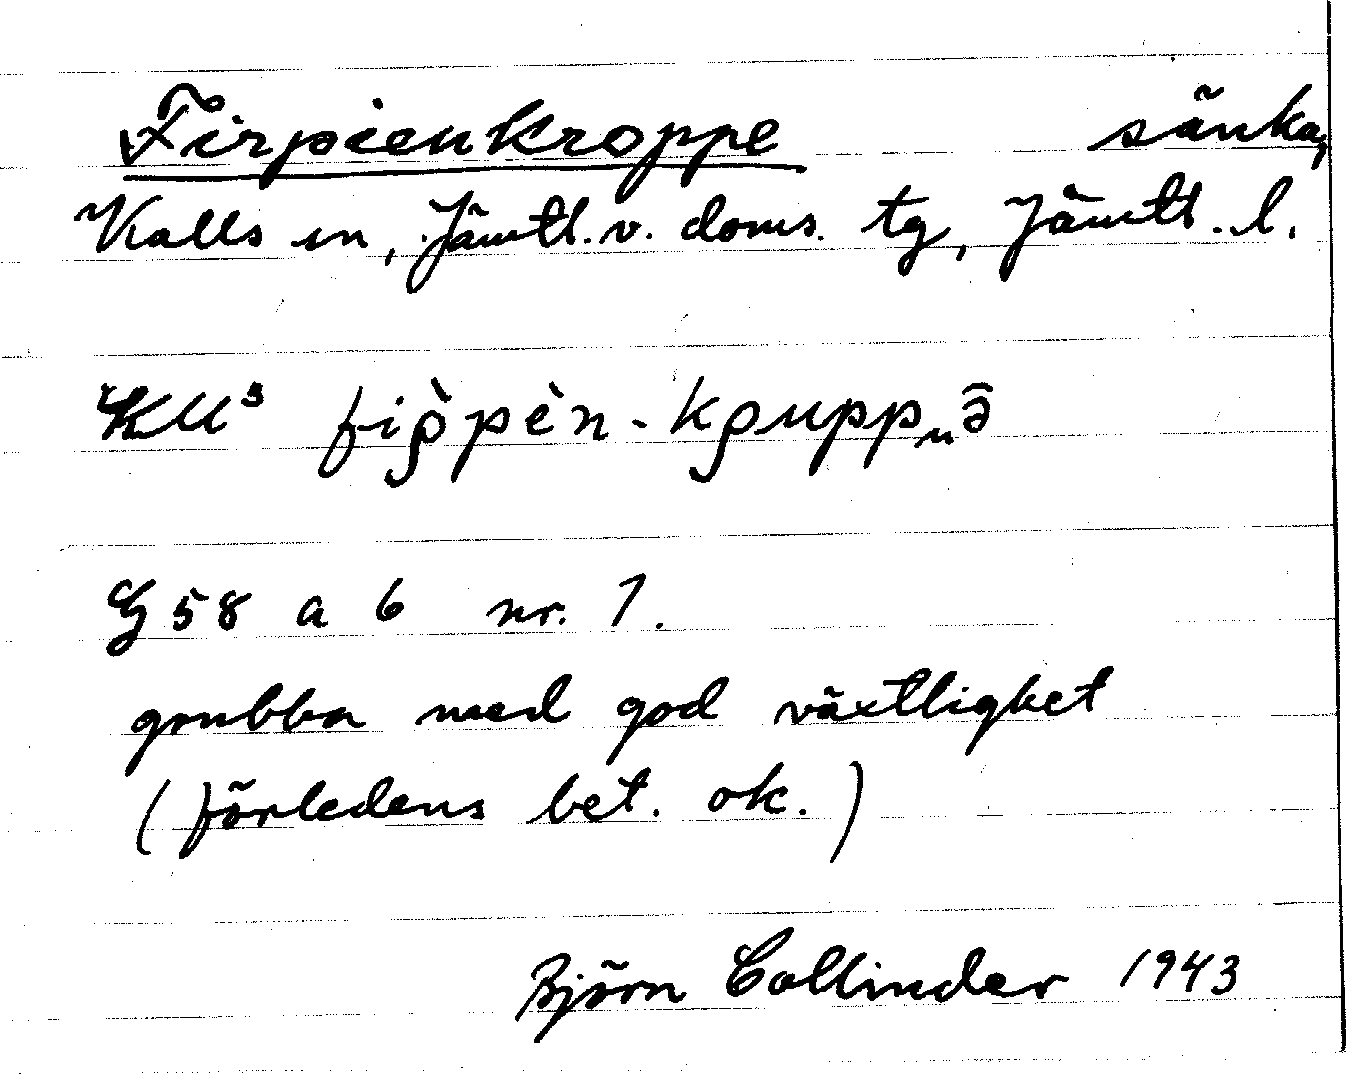 Firpienkroppe sänka,
Kalls sn, Jämtl. v. doms. tg, Jämtl. l.
KU³ fiρ̀pèn-kρuppᵤə̂
G 58 a 6 nr. 1.
grubba med god växtlighet
(förledens bet. ok.)
Björn Collinder 1943